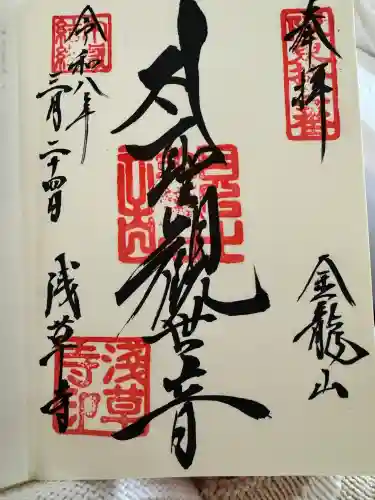 奉拝
金龍山
聖観世音
令和八年
三月二十四日
浅草寺
浅草
寺印